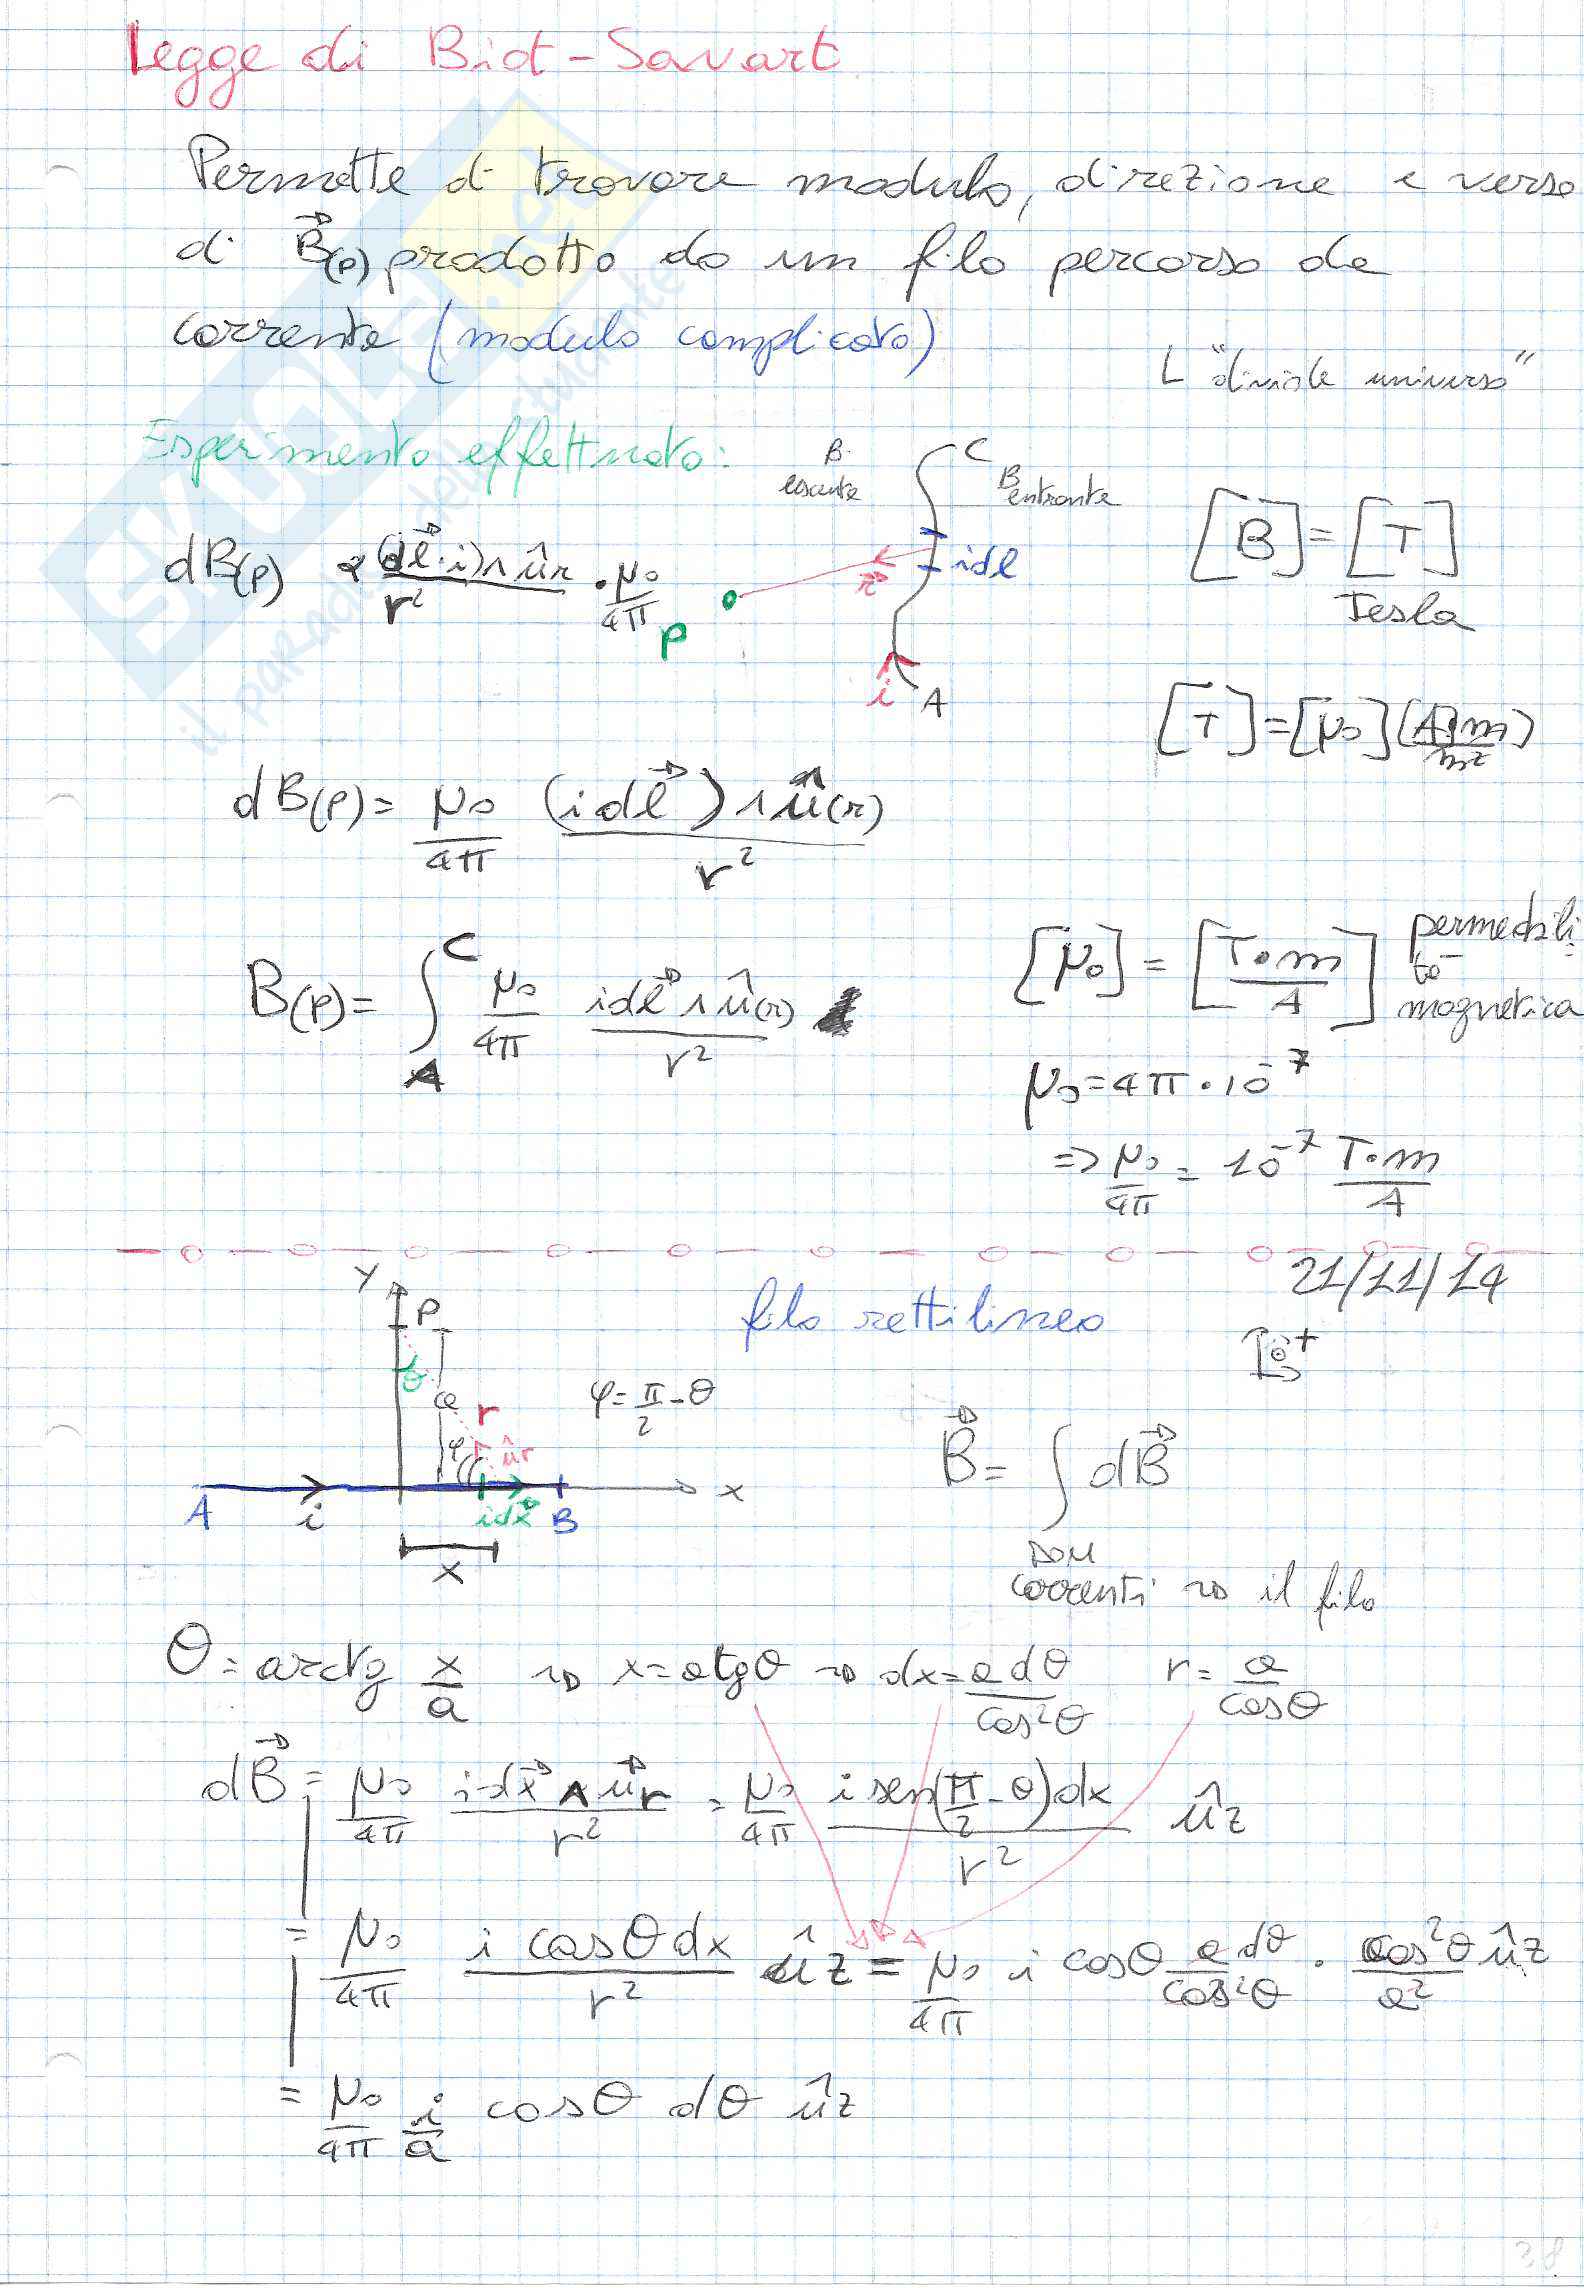 Legge di Biot-Savart
Permette di trovare modulo, direzione e verso
di B⃗(P) prodotto da un filo percorso da
corrente (modulo complicato)
L "divide universo"
Esperimento effettuato:
B uscente
C
B entrante
dB(P) (dl⃗·i)∧ûr / r² · μ₀/4π
P
r⃗
idl
i
A
[B]=[T]
Tesla
[T]=[μ₀](A·m/m²)
dB(P)= μ₀/4π (idl⃗)∧û(r) / r²
B(P)= ∫_A^C μ₀/4π idl⃗∧û(r) / r²
[μ₀]=[T·m/A] permeabilità magnetica
μ₀=4π·10⁻⁷
=> μ₀/4π = 10⁻⁷ T·m/A
21/11/14
filo rettilineo
y
P
θ
a
r
φ
ûr
φ=π/2-θ
A
i
idx⃗
B
x
x
B⃗= ∫ dB⃗
DOM
correnti → il filo
θ=arctg x/a → x=atgθ → dx=a dθ/cos²θ r=a/cosθ
dB⃗= μ₀/4π idx⃗∧u⃗r / r² = μ₀/4π i sen(π/2-θ)dx / r² ûz
= μ₀/4π i cosθdx / r² ûz = μ₀/4π i cosθ a dθ/cos²θ · cos²θ/a² ûz
= μ₀/4π i/a cosθ dθ ûz
38
SKUOLA.net
il paradiso dello studente